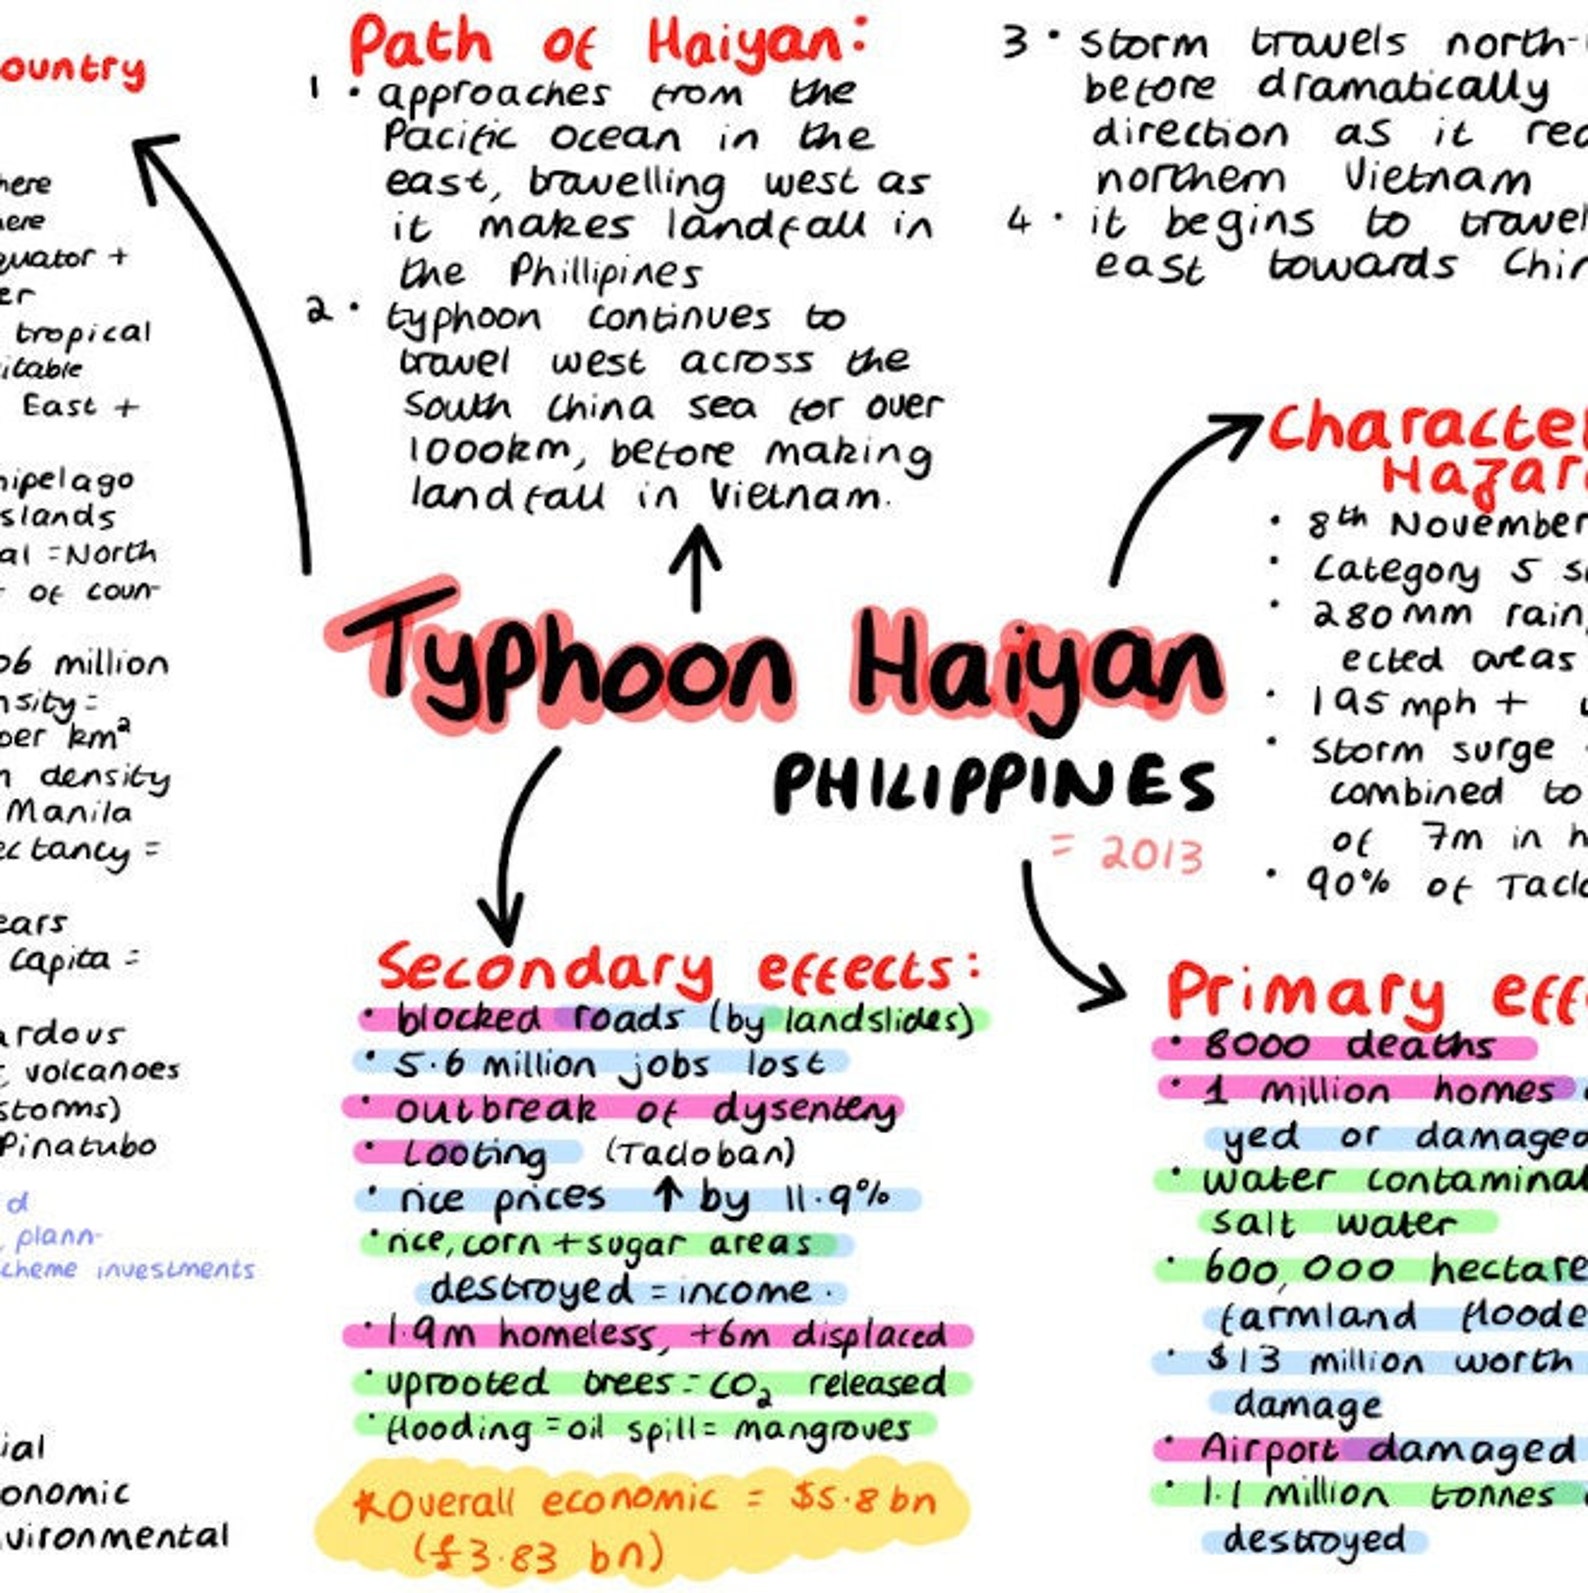 ountry
here
here
quator +
er
tropical
itable
East +
hipelago
slands
al = North
of coun-
06 million
nsity =
per km²
n density
Manila
ectancy =
ears
capita =
ardous
, volcanoes
storms)
Pinatubo
d
, plann-
cheme investments
ial
onomic
nvironmental
Path of Haiyan:
1 • approaches from the
Pacific ocean in the
east, travelling west as
it makes landfall in
the Phillipines
2 • typhoon continues to
travel west across the
South China sea for over
1000km, before making
landfall in Vietnam.
3 • storm travels north-
before dramatically
direction as it rea
northern Vietnam
4 • it begins to travel
east towards Chin
Typhoon Haiyan
PHILIPPINES
= 2013
Character
Hazar
• 8th November
• Category 5 s
• 280mm rain,
ected areas
• 195 mph +
• Storm surge
combined to
of 7m in h
• 90% of Taclo
Secondary effects:
• blocked roads (by landslides)
• 5.6 million jobs lost
• outbreak of dysentery
• Looting (Tacloban)
• rice prices ↑ by 11.9%
• rice, corn + sugar areas
destroyed = income.
• 1.9m homeless, +6m displaced
• uprooted trees = CO₂ released
• flooding = oil spill = mangroves
*Overall economic = $5.8bn
(£3.83 bn)
Primary eff
• 8000 deaths
• 1 million homes
yed or damaged
• water contaminat
salt water
• 600,000 hectare
farmland floode
• $13 million worth
damage
• Airport damaged
• 1.1 million tonnes
destroyed